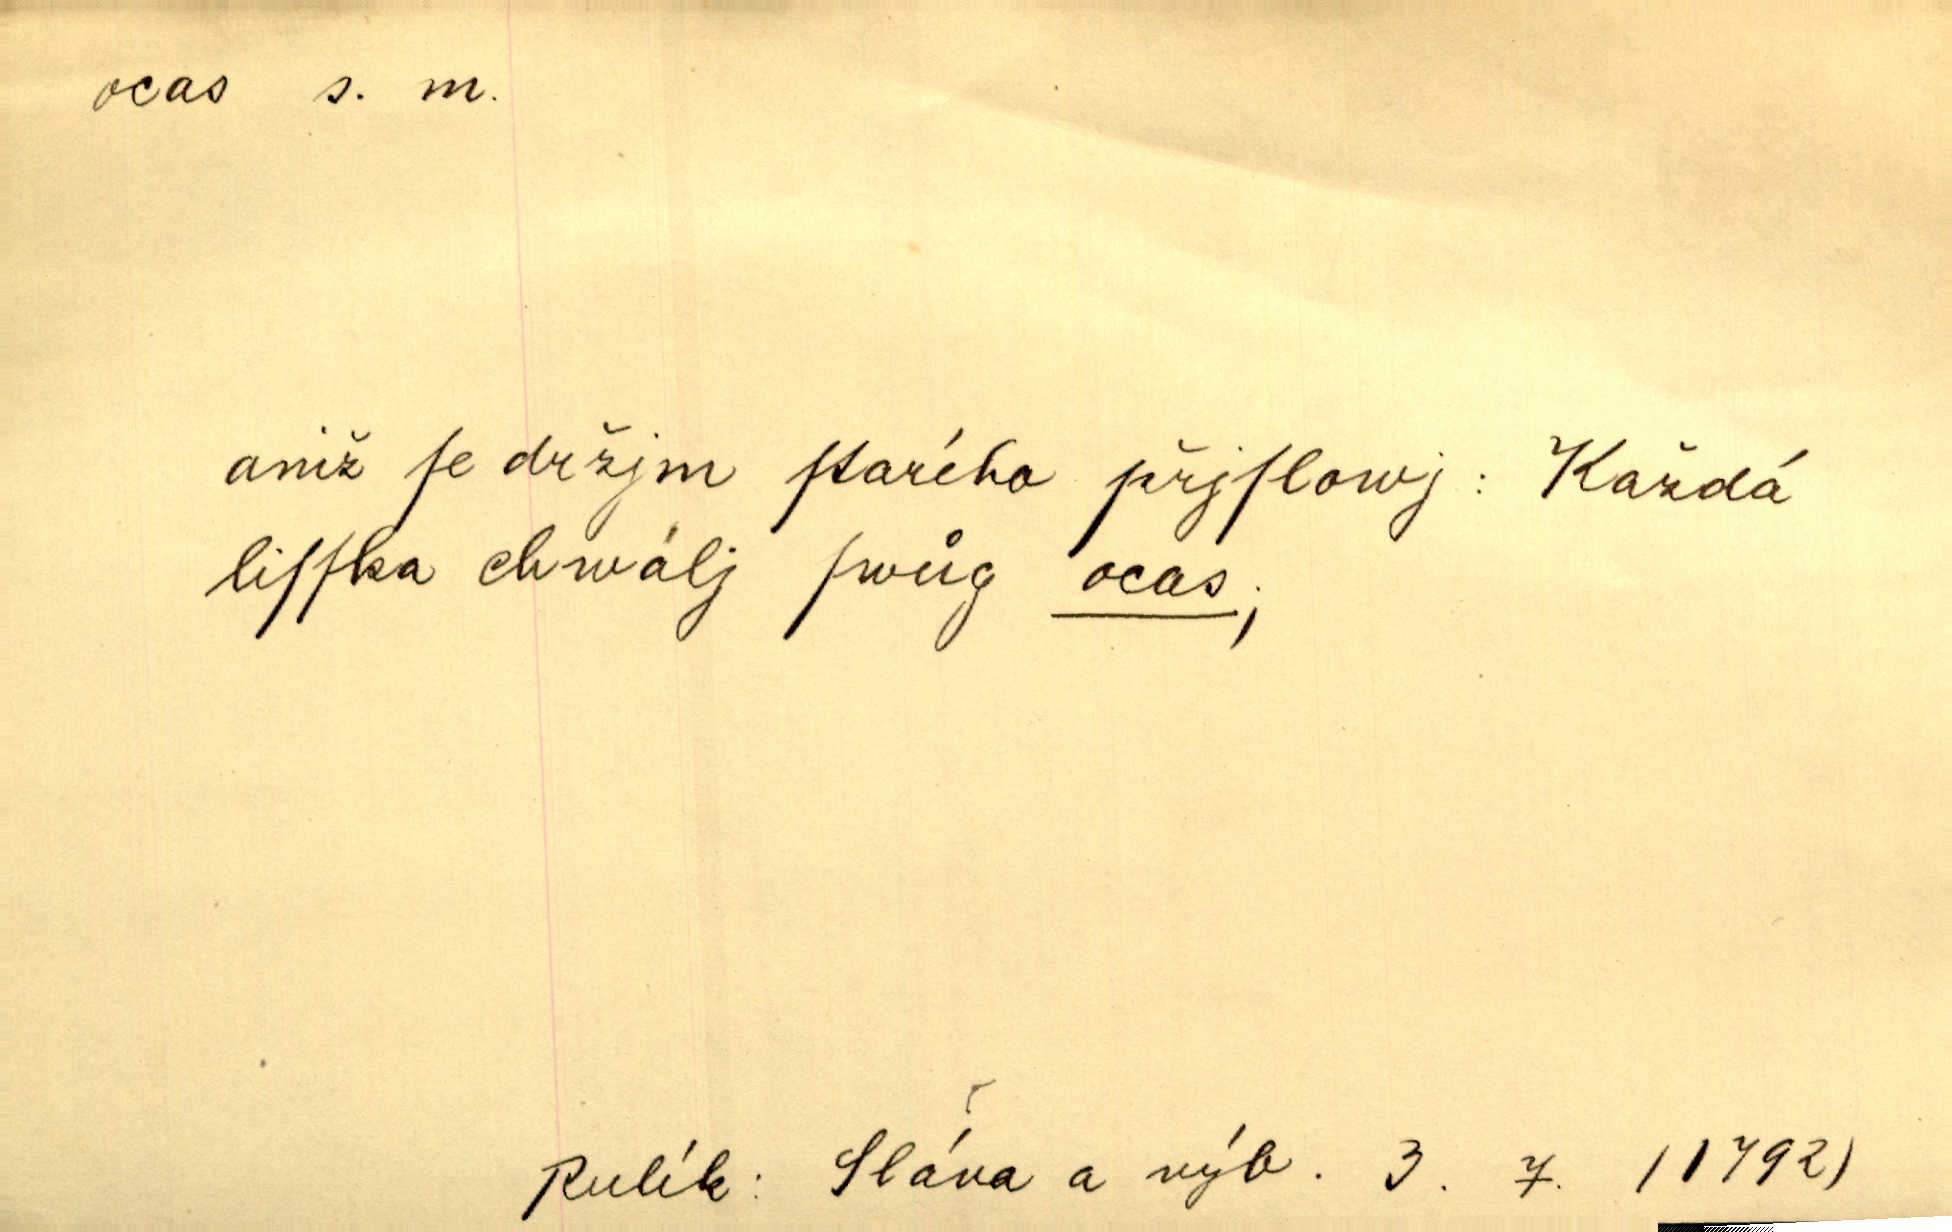 ocas s. m.
aniž ſe držjm ſtarého přjſlowj: Každá
liſſka chwálj ſwůg ocas;
Rulík: Sláva a výb. 3. 7. (1792)